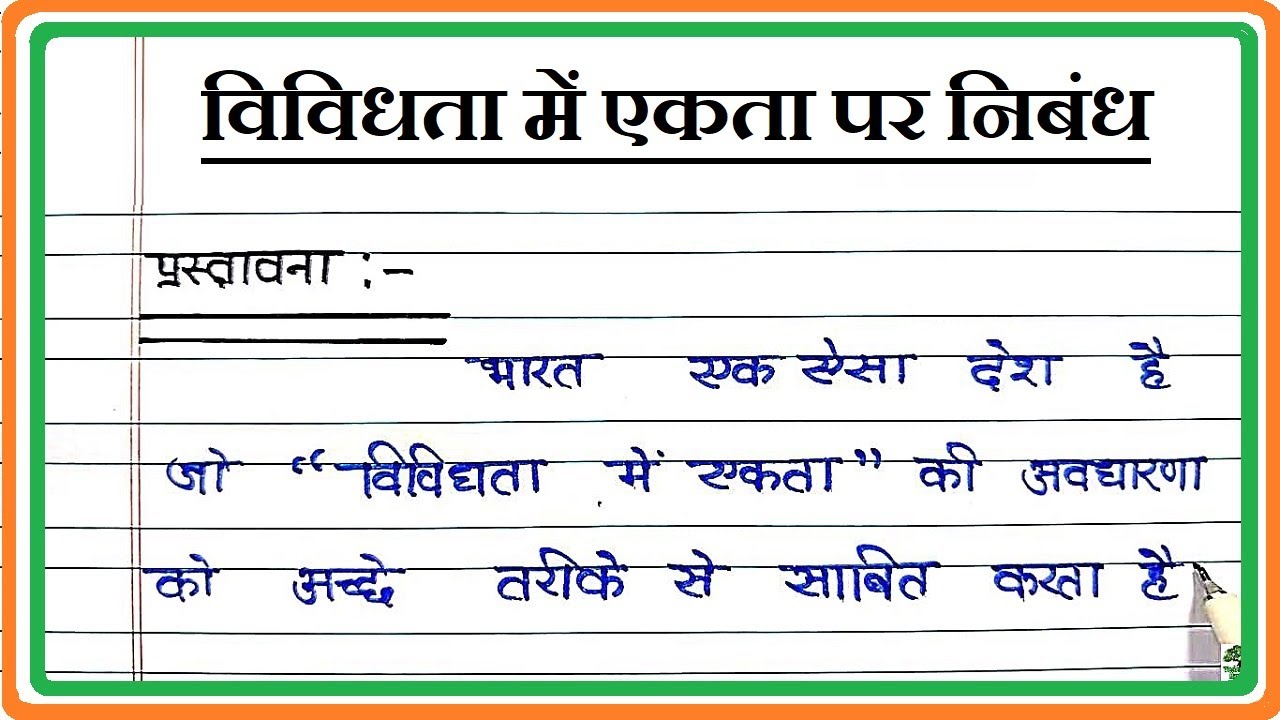 विविधता में एकता पर निबंध
प्रस्तावना :-
भारत एक ऐसा देश है
जो “विविधता में एकता” की अवधारणा
को अच्छे तरीके से साबित करता है